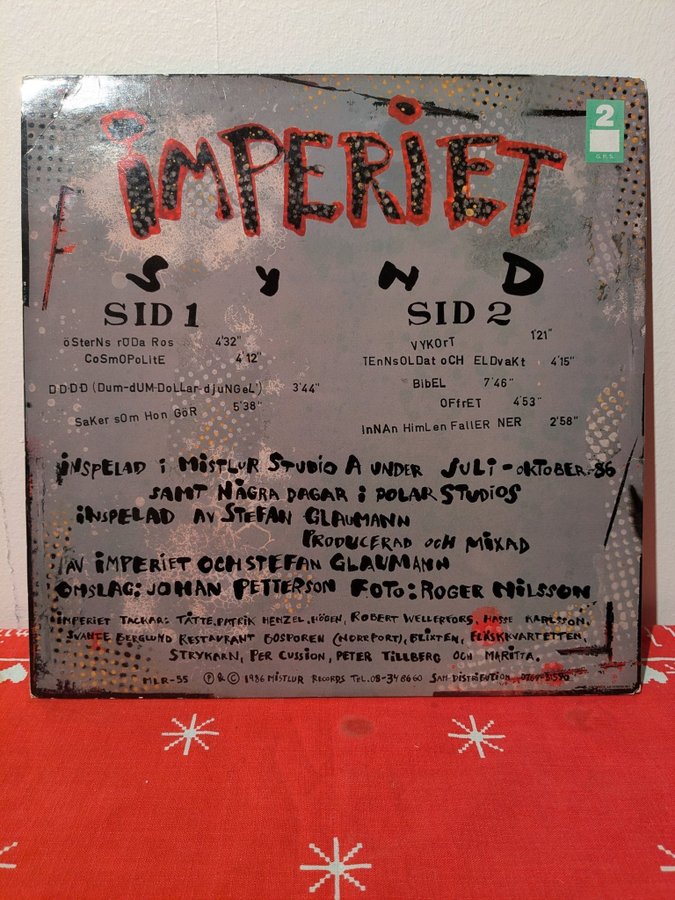 iMPERiET
2
G.P.S.
SYND
SID 1
öSterNs rÖDa Ros 4'32"
CoSmOPoLitE 4'12"
D·D·D·D (Dum-dUM-DoLLar-djuNGeL') 3'44"
SaKer sOm Hon GöR 5'38"
SID 2
VYKOrT 1'21"
TEnNsOLDat oCH ELDvaKt 4'15"
BibEL 7'46"
OFfrET 4'53"
InNAn HimLen FallER NER 2'58"
iNSPELAD i MiSTLUR STUDiO A UNDER JULi-OKTOBER-86
SAMT NÅGRA DAGAR i POLAR STUDiOS
iNSPELAD AV STEFAN GLAUMANN
PRODUCERAD OCH MiXAD
AV iMPERiET OCH STEFAN GLAUMANN
OMSLAG: JOHAN PETTERSON FOTO: ROGER NiLSSON
iMPERiET TACKAR: TÅTTE, PATRiK HENZEL, HÖGEN, ROBERT WELLERFORS, HASSE KARLSSON,
SVANTE BERGLUND RESTAURANT BOSPOREN (NORRPORT), BLiXTEN, FLÄSKKVARTETTEN,
STRYKARN, PER CUSSiON, PETER TiLLBERG OCH MARiTTA.
MLR-55 Ⓟ & © 1986 MiSTLUR RECORDS TEL. 08-34 86 60 SAM-DiSTRiBUTiON